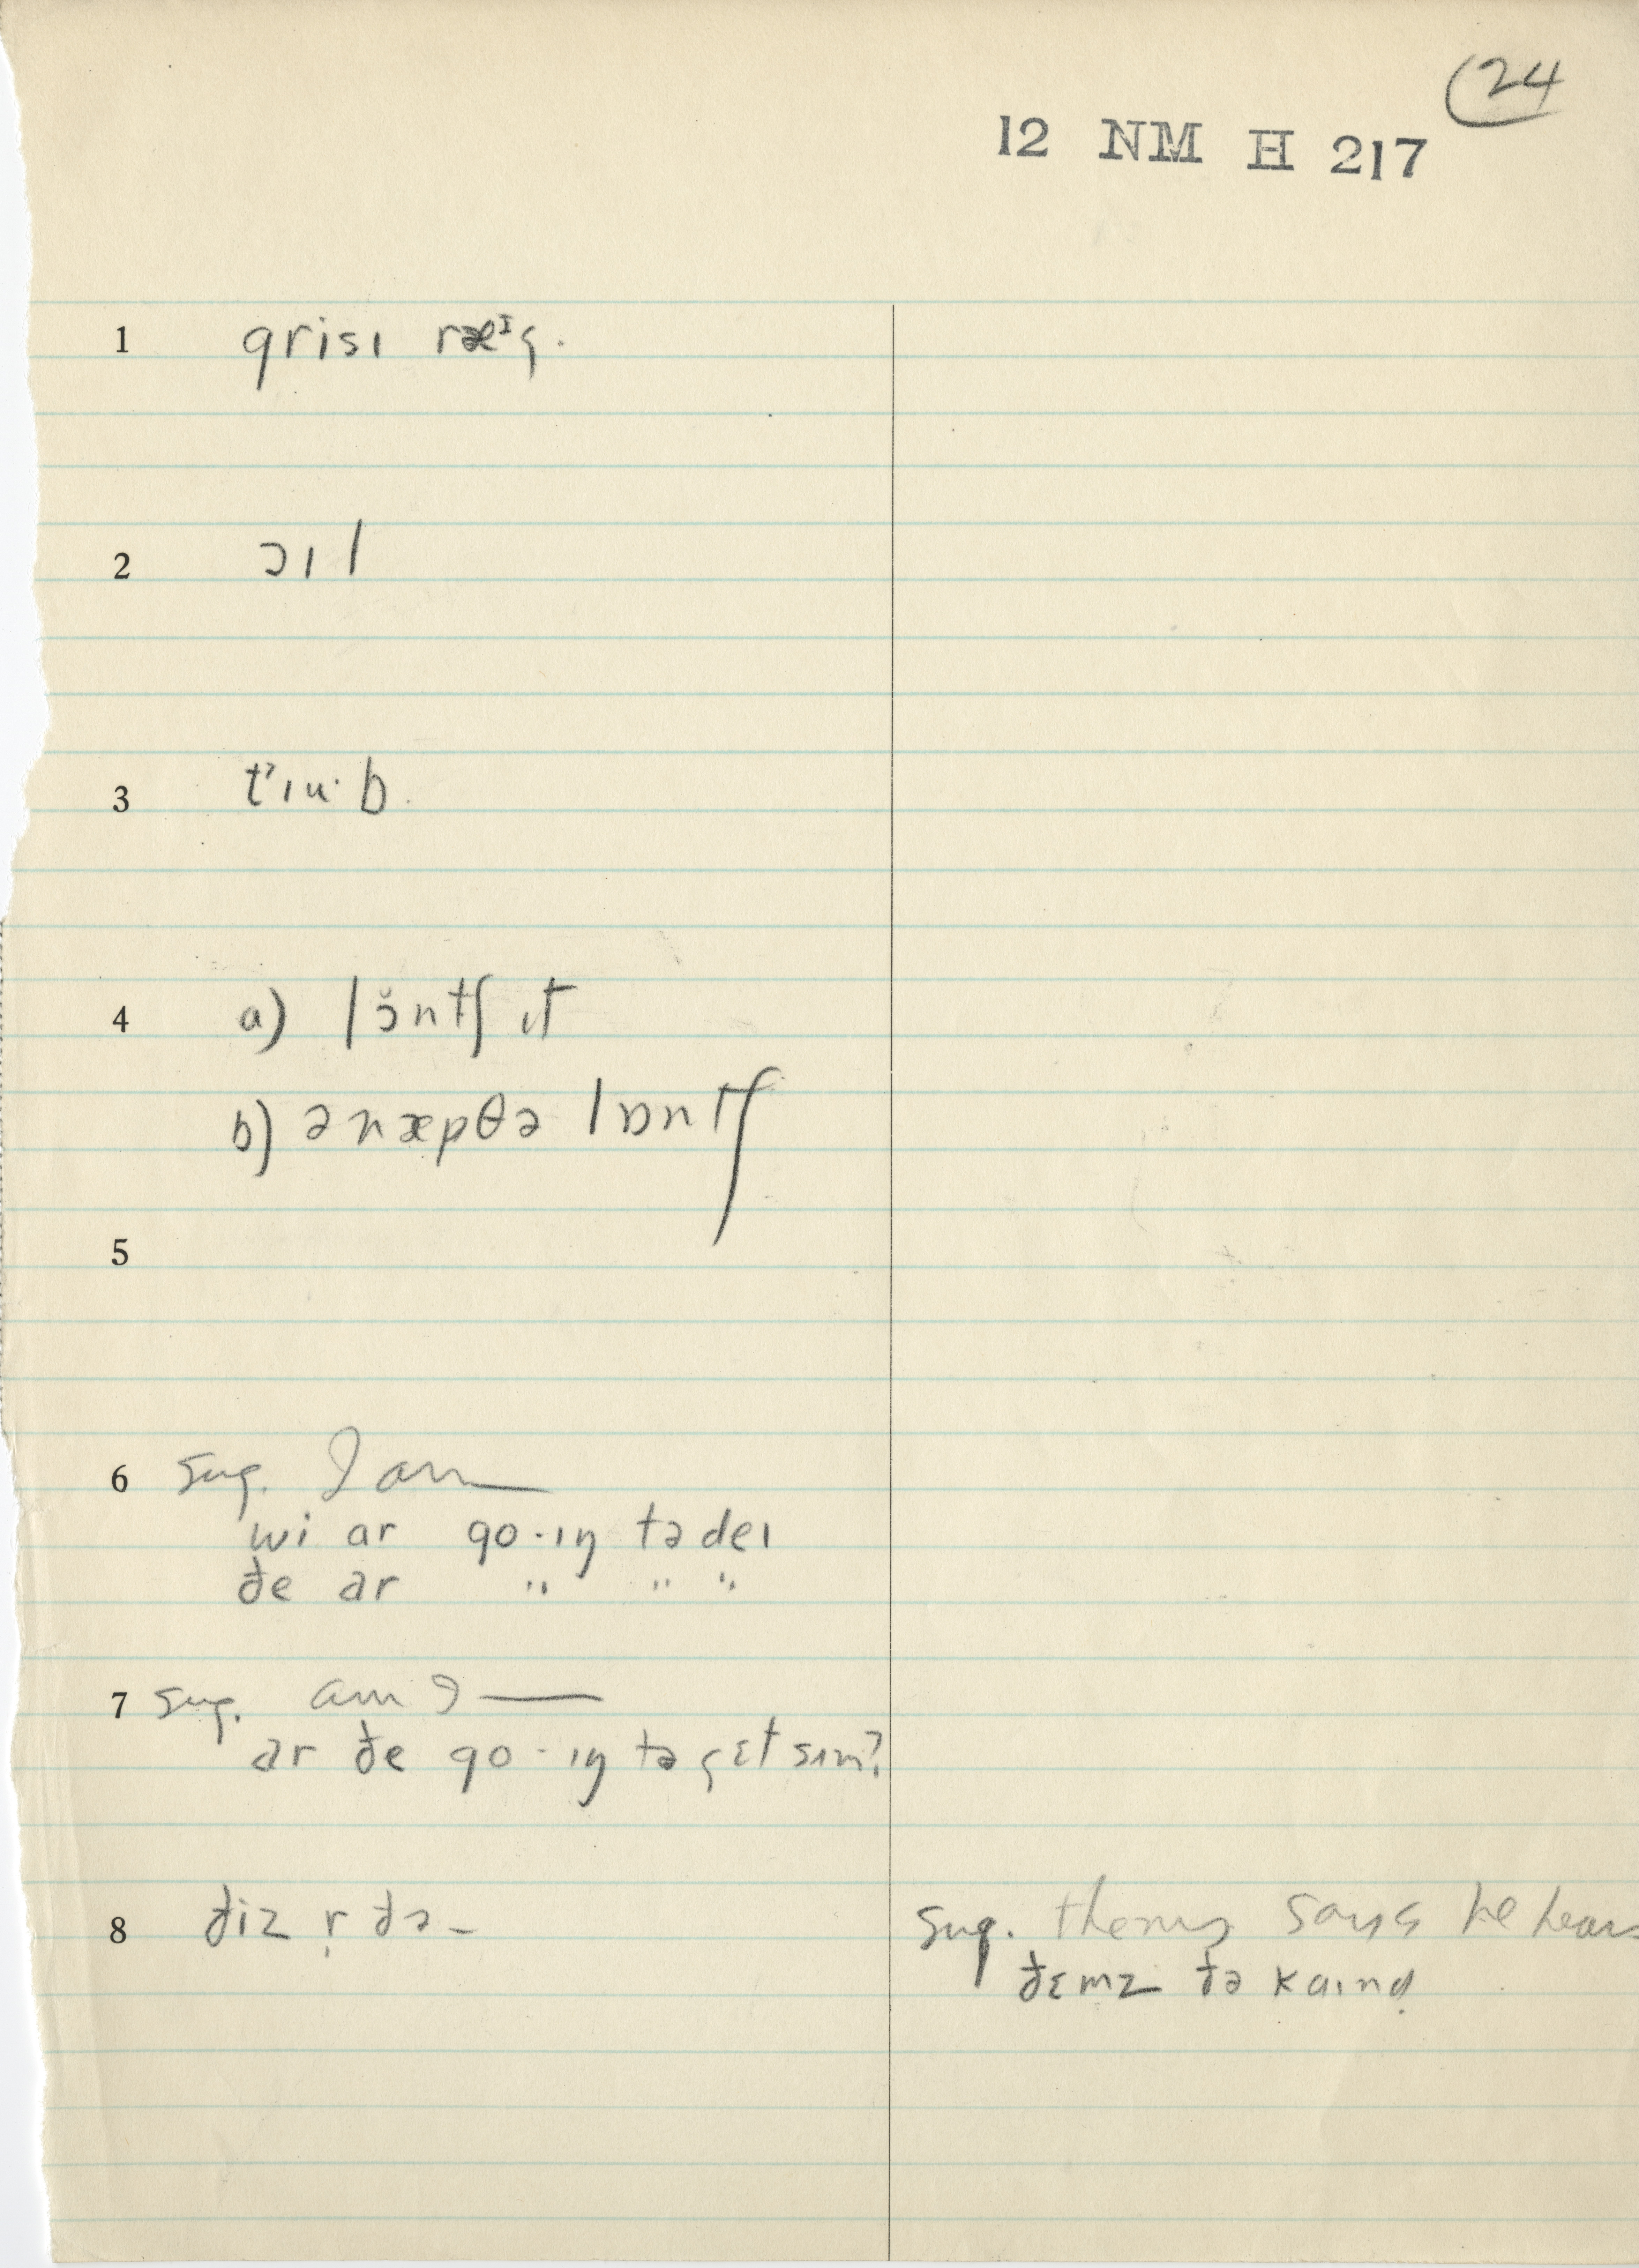 24
12 NM H 217
1 grisɪ ræᶦg.
2 ɔɪl
3 t'ɪu·b.
4 a) lɔ̆ntʃ ɪt
b) ənæpθə lɒntʃ
5
6 sug. I am —
wi ar go·ɪŋ tə deɪ
ðe ar " " "
7 sug. am I —
ar ðe go·ɪŋ tə gɛt sɪm?
8 ðiz r̩ ðə –
sug. says he hears
ðɛmz ðə kaɪnd̥